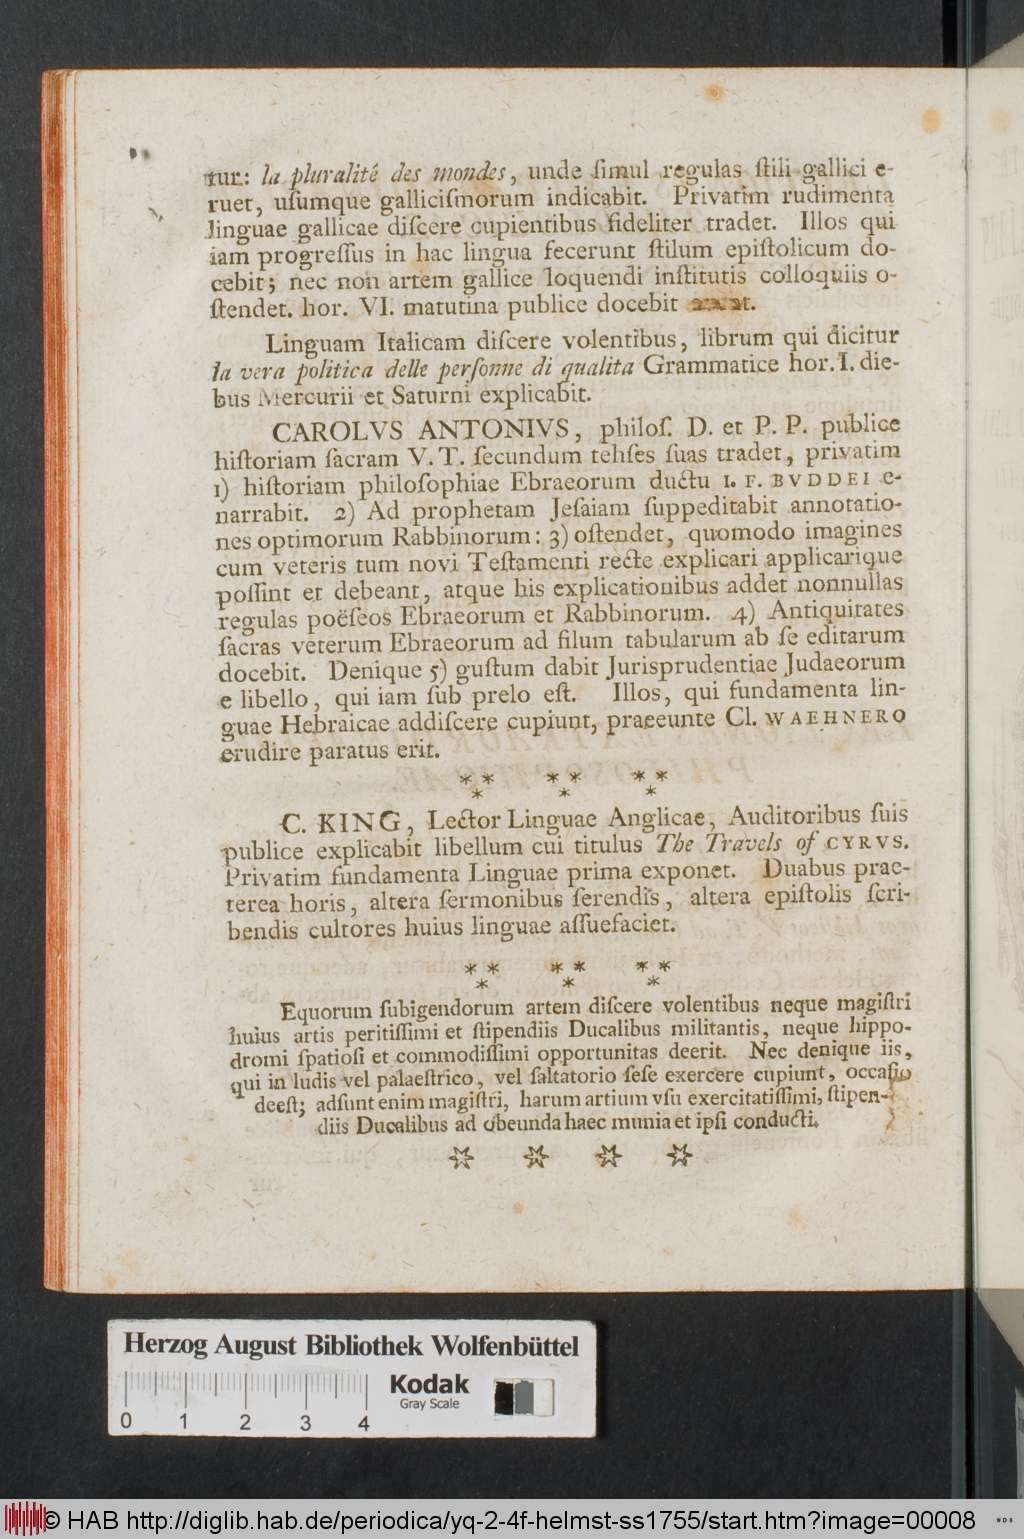 tur.: la pluralité des mondes, unde ſimul regulas ſtili gallici e-
ruet, uſumque galliciſmorum indicabit. Privatim rudimenta
linguae gallicae diſcere cupientibus fideliter tradet. Illos qui
iam progreſſus in hac lingua fecerunt ſtilum epiſtolicum do-
cebit; nec non artem gallice loquendi inſtitutis colloquiis o-
ſtendet. hor. VI. matutina publice docebit
Linguam Italicam diſcere volentibus, librum qui dicitur
la vera politica delle perſonne di qualita Grammatice hor. I. die-
bus Mercurii et Saturni explicabit.
CAROLVS ANTONIVS, philoſ. D. et P. P. publice
hiſtoriam ſacram V. T. ſecundum tehſes ſuas tradet, privatim
1) hiſtoriam philoſophiae Ebraeorum ductu I. F. BVDDEI e-
narrabit. 2) Ad prophetam Jeſaiam ſuppeditabit annotatio-
nes optimorum Rabbinorum: 3) oſtendet, quomodo imagines
cum veteris tum novi Teſtamenti recte explicari applicarique
poſſint et debeant, atque his explicationibus addet nonnullas
regulas poëſeos Ebraeorum et Rabbinorum. 4) Antiquitates
ſacras veterum Ebraeorum ad filum tabularum ab ſe editarum
docebit. Denique 5) guſtum dabit Jurisprudentiae Judaeorum
e libello, qui iam ſub prelo eſt. Illos, qui fundamenta lin-
guae Hebraicae addiſcere cupiunt, praeeunte Cl. WAEHNERO
erudire paratus erit.
C. KING, Lector Linguae Anglicae, Auditoribus ſuis
publice explicabit libellum cui titulus The Travels of CYRVS.
Privatim fundamenta Linguae prima exponet. Duabus prae-
terea horis, altera ſermonibus ſerendis, altera epiſtolis ſcri-
bendis cultores huius linguae aſſuefaciet.
Equorum ſubigendorum artem diſcere volentibus neque magiſtri
huius artis peritiſſimi et ſtipendiis Ducalibus militantis, neque hippo-
dromi ſpatioſi et commodiſſimi opportunitas deerit. Nec denique iis,
qui in ludis vel palaeſtrico, vel ſaltatorio ſeſe exercere cupiunt, occaſio
deeſt; adſunt enim magiſtri, harum artium vſu exercitatiſſimi, ſtipen-
diis Ducalibus ad obeunda haec munia et ipſi conducti.
Herzog August Bibliothek Wolfenbüttel
Kodak
Gray Scale
0 1 2 3 4
© HAB http://diglib.hab.de/periodica/yq-2-4f-helmst-ss1755/start.htm?image=00008